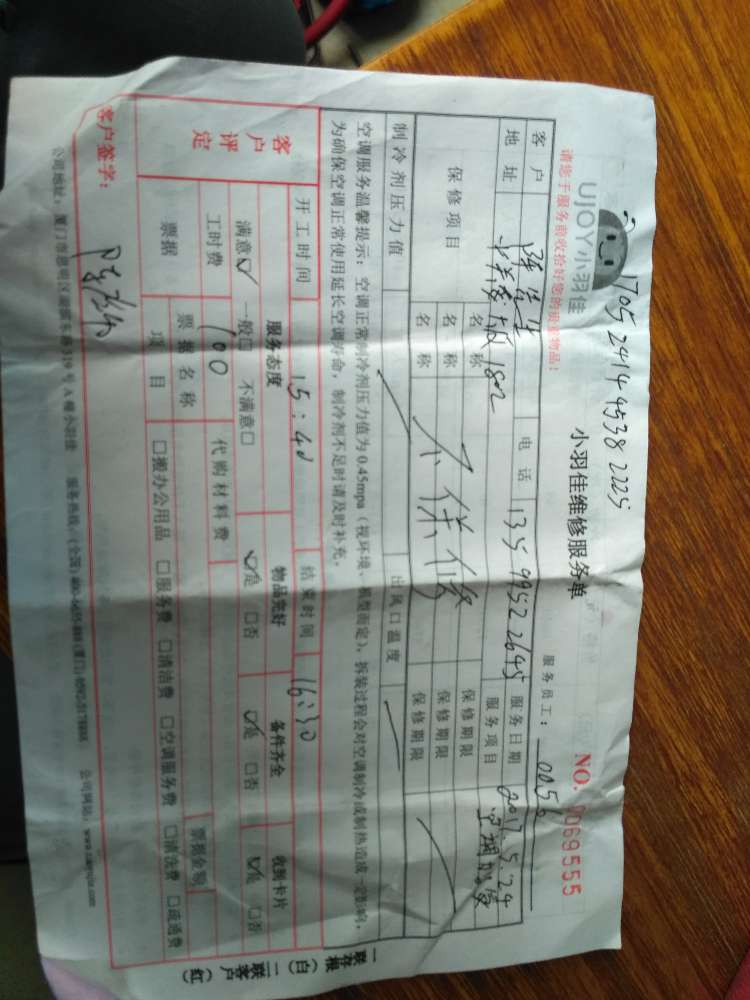 1705 2414 4538 2225
UJOY小羽佳
小羽佳维修服务单
NO. 0069555
请您于服务前收拾好您的贵重物品!
服务员工: 0056
客户 电话 13599522645 服务日期 2017.5.24
地址 1802 服务项目 空调加液
保修项目 名称 不保修 保修期限
名称 保修期限
名称 保修期限
制冷剂压力值 出风口温度
空调服务温馨提示:空调正常制冷剂压力值为0.45mpa(视环境、机型而定),拆装过程会对空调制冷或制热造成一定影响,
为确保空调正常使用延长空调寿命,制冷剂不足时请及时补充。
开工时间 15:40 结束时间 16:30
客户评定 服务态度 物品完好 备件齐全 收到卡片
满意☑ 一般□ 不满意□ ☑是 □否 ☑是 □否 ☑是 □否
工时费 100 代购材料费
票据 票据名称 票据金额
项目 □搬办公用品 □服务费 □清洁费 □空调服务费 □清洗费 □疏通费
客户签字:
公司地址:厦门市思明区 319号A幢小羽佳 服务热线:(全国) (厦门) 0592-5178888 公司网站:
一联存根(白) 二联客户(红)